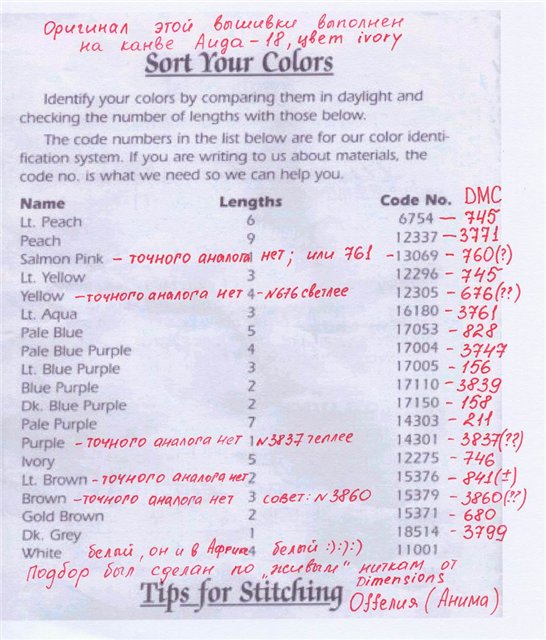 Оригинал этой вышивки выполнен
на канве Аида-18, цвет ivory
Sort Your Colors
Identify your colors by comparing them in daylight and
checking the number of lengths with those below.
The code numbers in the list below are for our color identi-
fication system. If you are writing to us about materials, the
code no. is what we need so we can help you.
Name Lengths Code No. DMC
Lt. Peach 6 6754 – 745
Peach 9 12337 – 3771
Salmon Pink – точного аналога нет; или 761 – 13069 – 760(?)
Lt. Yellow 3 12296 – 745
Yellow – точного аналога нет 4 – N676 светлее 12305 – 676(??)
Lt. Aqua 3 16180 – 3761
Pale Blue 5 17053 – 828
Pale Blue Purple 4 17004 – 3747
Lt. Blue Purple 3 17005 – 156
Blue Purple 2 17110 – 3839
Dk. Blue Purple 2 17150 – 158
Pale Purple 7 14303 – 211
Purple – точного аналога нет 1 N3837 теплее 14301 – 3837(??)
Ivory 5 12275 – 746
Lt. Brown – точного аналога нет 2 15376 – 841(±)
Brown – точного аналога нет 3 совет: N3860 15379 – 3860(??)
Gold Brown 2 15371 – 680
Dk. Grey 1 18514 – 3799
White белый, он и в Африке 4 белый :):):) 11001
Подбор был сделан по „живым" ниткам от
Dimensions
Tips for Stitching Оффелия (Анима)